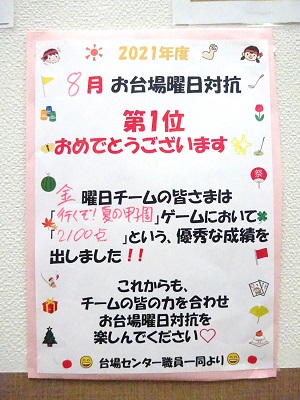 2021年度
8月 お台場曜日対抗
第1位
おめでとうございます
金 曜日チームの皆さまは
「行くぞ!夏の甲子園」ゲームにおいて
「2100点 」という、優秀な成績を
出しました!!
これからも、
チームの皆の力を合わせ
お台場曜日対抗を
楽しんでください♡
台場センター職員一同より
祭